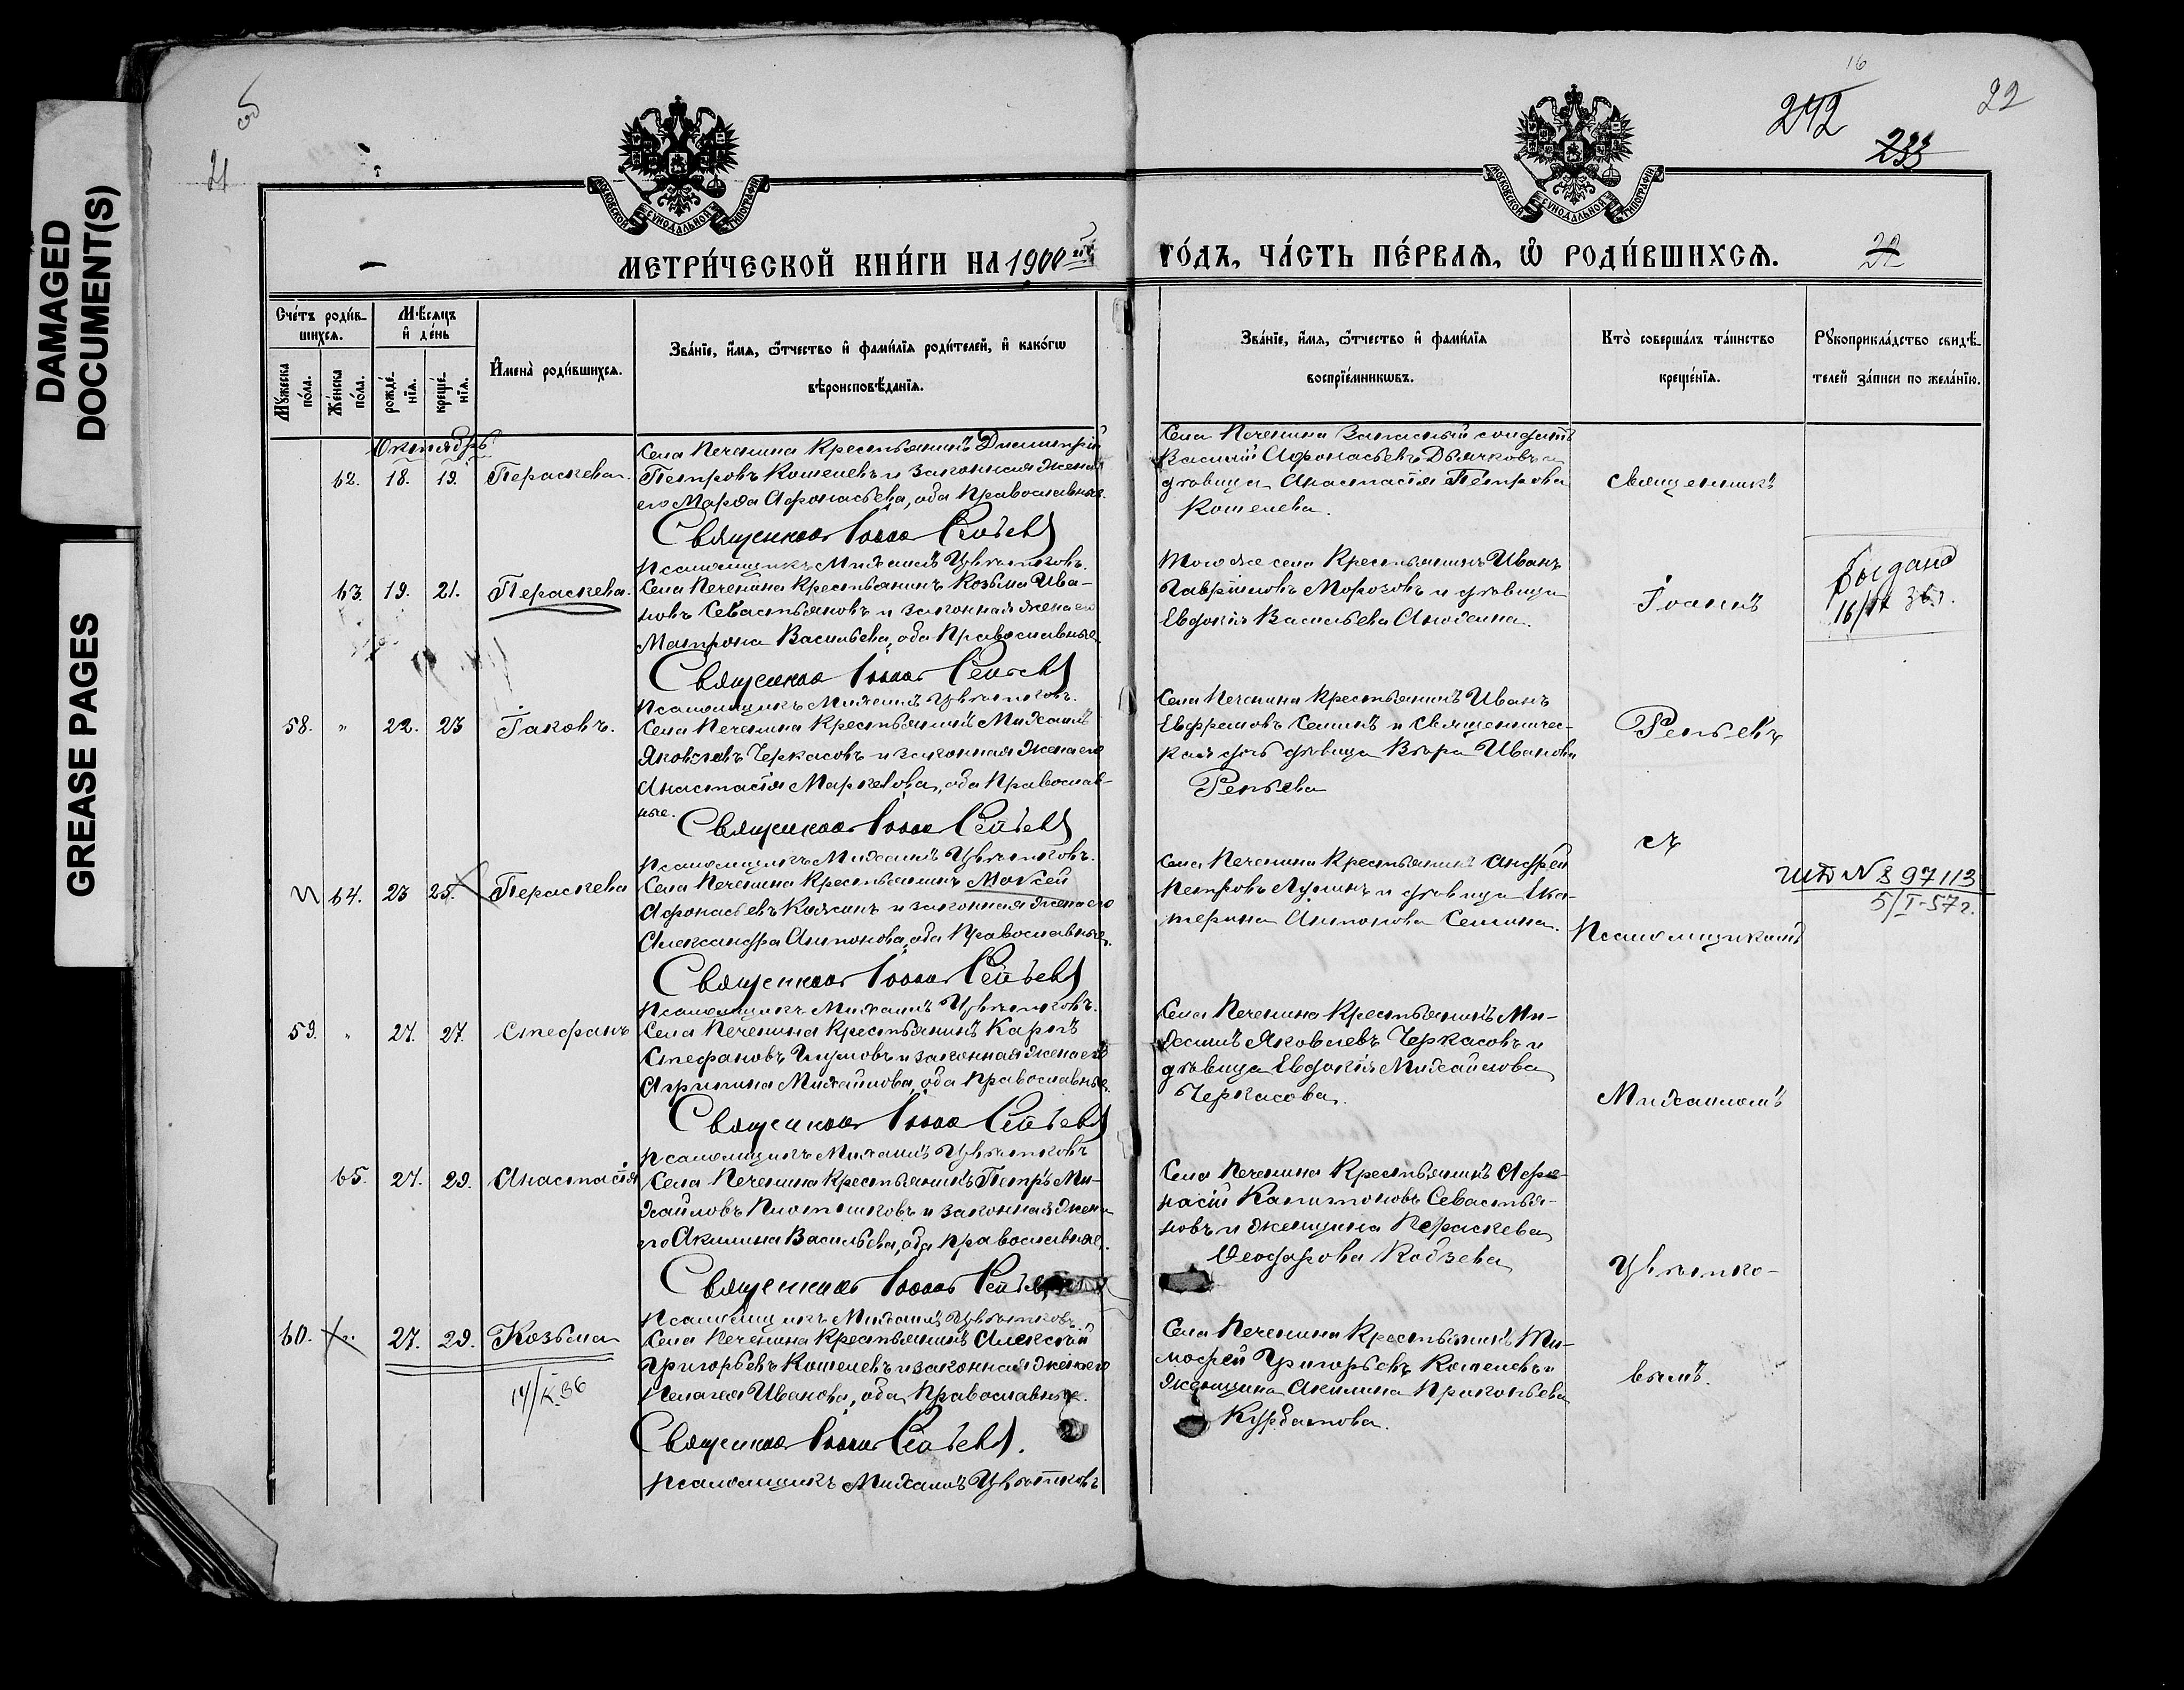 DAMAGED
DOCUMENT(S)
GREASE PAGES
21
242
16
22
233
МОСКОВСКОЙ СѴНОДАЛЬНОЙ ТИПОГРАФІИ
МОСКОВСКОЙ СѴНОДАЛЬНОЙ ТИПОГРАФІИ
МЕТРИ́ЧЕСКОЙ КНИ́ГИ НА 1900 й
ГО́ДЪ, ЧА́СТЬ ПЕ́РВАѦ, Ѽ РОДИ́ВШИХСѦ.
22
Сче́тъ роди́в-
шихсѧ.
Мꙋ́жеска по́ла.
Же́нска по́ла.
Мѣ́сѧцъ
и҆ де́нь
рожде́-нїѧ.
креще́-нїѧ.
И҆мена̀ роди́вшихсѧ.
Зва́нїе, и҆́мѧ, ѻ҆́тчество и҆ фами́лїѧ роди́телей, и҆ како́гѡ
вѣроисповѣ́данїѧ.
Зва́нїе, и҆́мѧ, ѻ҆́тчество и҆ фами́лїѧ
воспрїе́мникѡвъ.
Кто̀ соверша́лъ та́инство
креще́нїѧ.
Рꙋкоприкла́дство свидѣ́-
телей за́писи по жела́нїю.
Октябрь
62. 18. 19. Параскева.
Села Печенина Крестьянинъ Димитрій
Петровъ Кошелевъ и законная жена
его Марфа Афонасьева, оба Православные.
Священникъ Іоаннъ Репьевъ
Псаломщикъ Михаилъ Цвѣтковъ.
Села Печенина Запасный солдатъ
Василій Афонасьевъ Дьячковъ и
дѣвица Анастасія Петрова
Кошелева.
Священникъ
63. 19. 21. Параскева.
Села Печенина Крестьянинъ Козьма Ива-
новъ Севастьяновъ и законная жена его
Матрона Васильева, оба Православные.
Священникъ Іоаннъ Репьевъ
Псаломщикъ Михаилъ Цвѣтковъ.
Того же села Крестьянинъ Иванъ
Гавріиловъ Морозовъ и дѣвица
Евдокія Васильева
Іоаннъ
58. " 22. 23 Іаковъ.
Села Печенина Крестьянинъ Михаилъ
Яковлевъ Черкасовъ и законная жена его
Анастасія Маркелова, оба Православ-
ные.
Священникъ Іоаннъ Репьевъ
Псаломщикъ Михаилъ Цвѣтковъ.
Села Печенина Крестьянинъ Иванъ
Евфремовъ Семинъ и священничес-
кая дочь дѣвица Вѣра Иванова
Репьева
Репьевъ
съ
64. 23 25. Параскева
Села Печенина Крестьянинъ Моѵсей
Афонасьевъ и законная жена его
Александра Антонова, оба Православные.
Священникъ Іоаннъ Репьевъ
Псаломщикъ Михаилъ Цвѣтковъ.
Села Печенина Крестьянинъ Андрей
Петровъ и дѣвица Ека-
терина Антонова Семина.
Псаломщикомъ
N 897113
5/I-57г.
59. " 27. 27. Стефанъ
Села Печенина Крестьянинъ Карпъ
Стефановъ и законная жена его
Агрипина Михайлова, оба Православные.
Священникъ Іоаннъ Репьевъ
Псаломщикъ Михаилъ Цвѣтковъ
Села Печенина Крестьянинъ Ми-
хаилъ Яковлевъ Черкасовъ и
дѣвица Евдокія Михайлова
Черкасова.
Михаиломъ
65. 27. 29. Анастасія
Села Печенина Крестьянинъ Петръ Ми-
хайловъ Плотниковъ и законная жена
его Акилина Васильева, оба Православные.
Священникъ Іоаннъ Репьевъ
Псаломщикъ Михаилъ Цвѣтковъ.
Села Печенина Крестьянинъ Афо-
насій Капитоновъ Севастья-
новъ и женщина Параскева
Ѳеодорова Кобзева
Цвѣтко-
60. 27. 29. Козьма
Села Печенина Крестьянинъ Алексѣй
Григорьевъ Кошелевъ и законная жена его
Пелагея Иванова, оба Православные.
Священникъ Іоаннъ Репьевъ.
Псаломщикъ Михаилъ Цвѣтковъ
Села Печенина Крестьянинъ Ти-
мофей Григорьевъ Кошелевъ и
женщина Акилина Прокопьева
Курбатова.
вымъ.